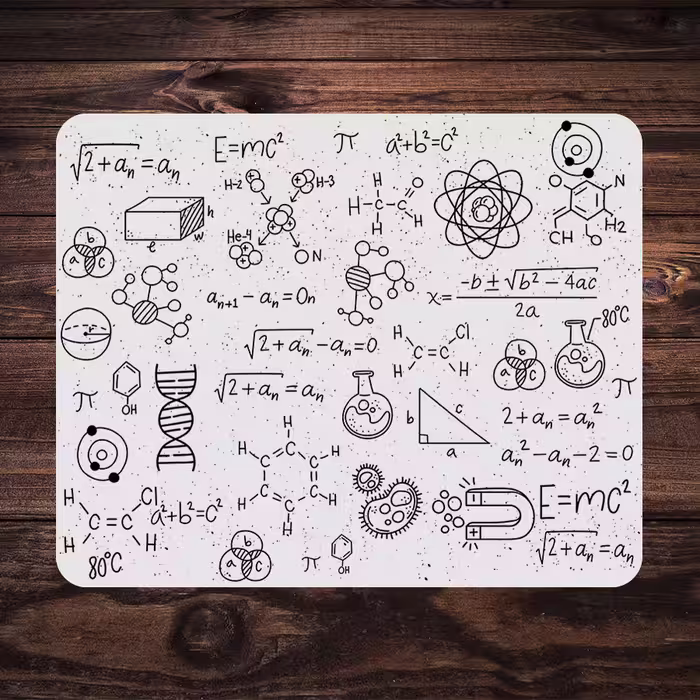 √2+aₙ = aₙ
E=mc²
π
a²+b²=c²
H-2
H-3
He-4
N
H
H C C O
H H
O N
CH O H2
h
w
e
b
a c
r
aₙ₊₁ − aₙ = 0n
x = −b ± √b² − 4ac
2a
√2+aₙ − aₙ = 0
H Cl
C=C
H H
80°C
b
a c
π
π
OH
√2+aₙ = aₙ
b c
a
2 + aₙ = aₙ²
aₙ² − aₙ − 2 = 0
H
H C H
C C
C C
H C H
H
H Cl
C=C
H H
a²+b²=c²
80°C
b
a c
π
OH
E=mc²
√2+aₙ = aₙ